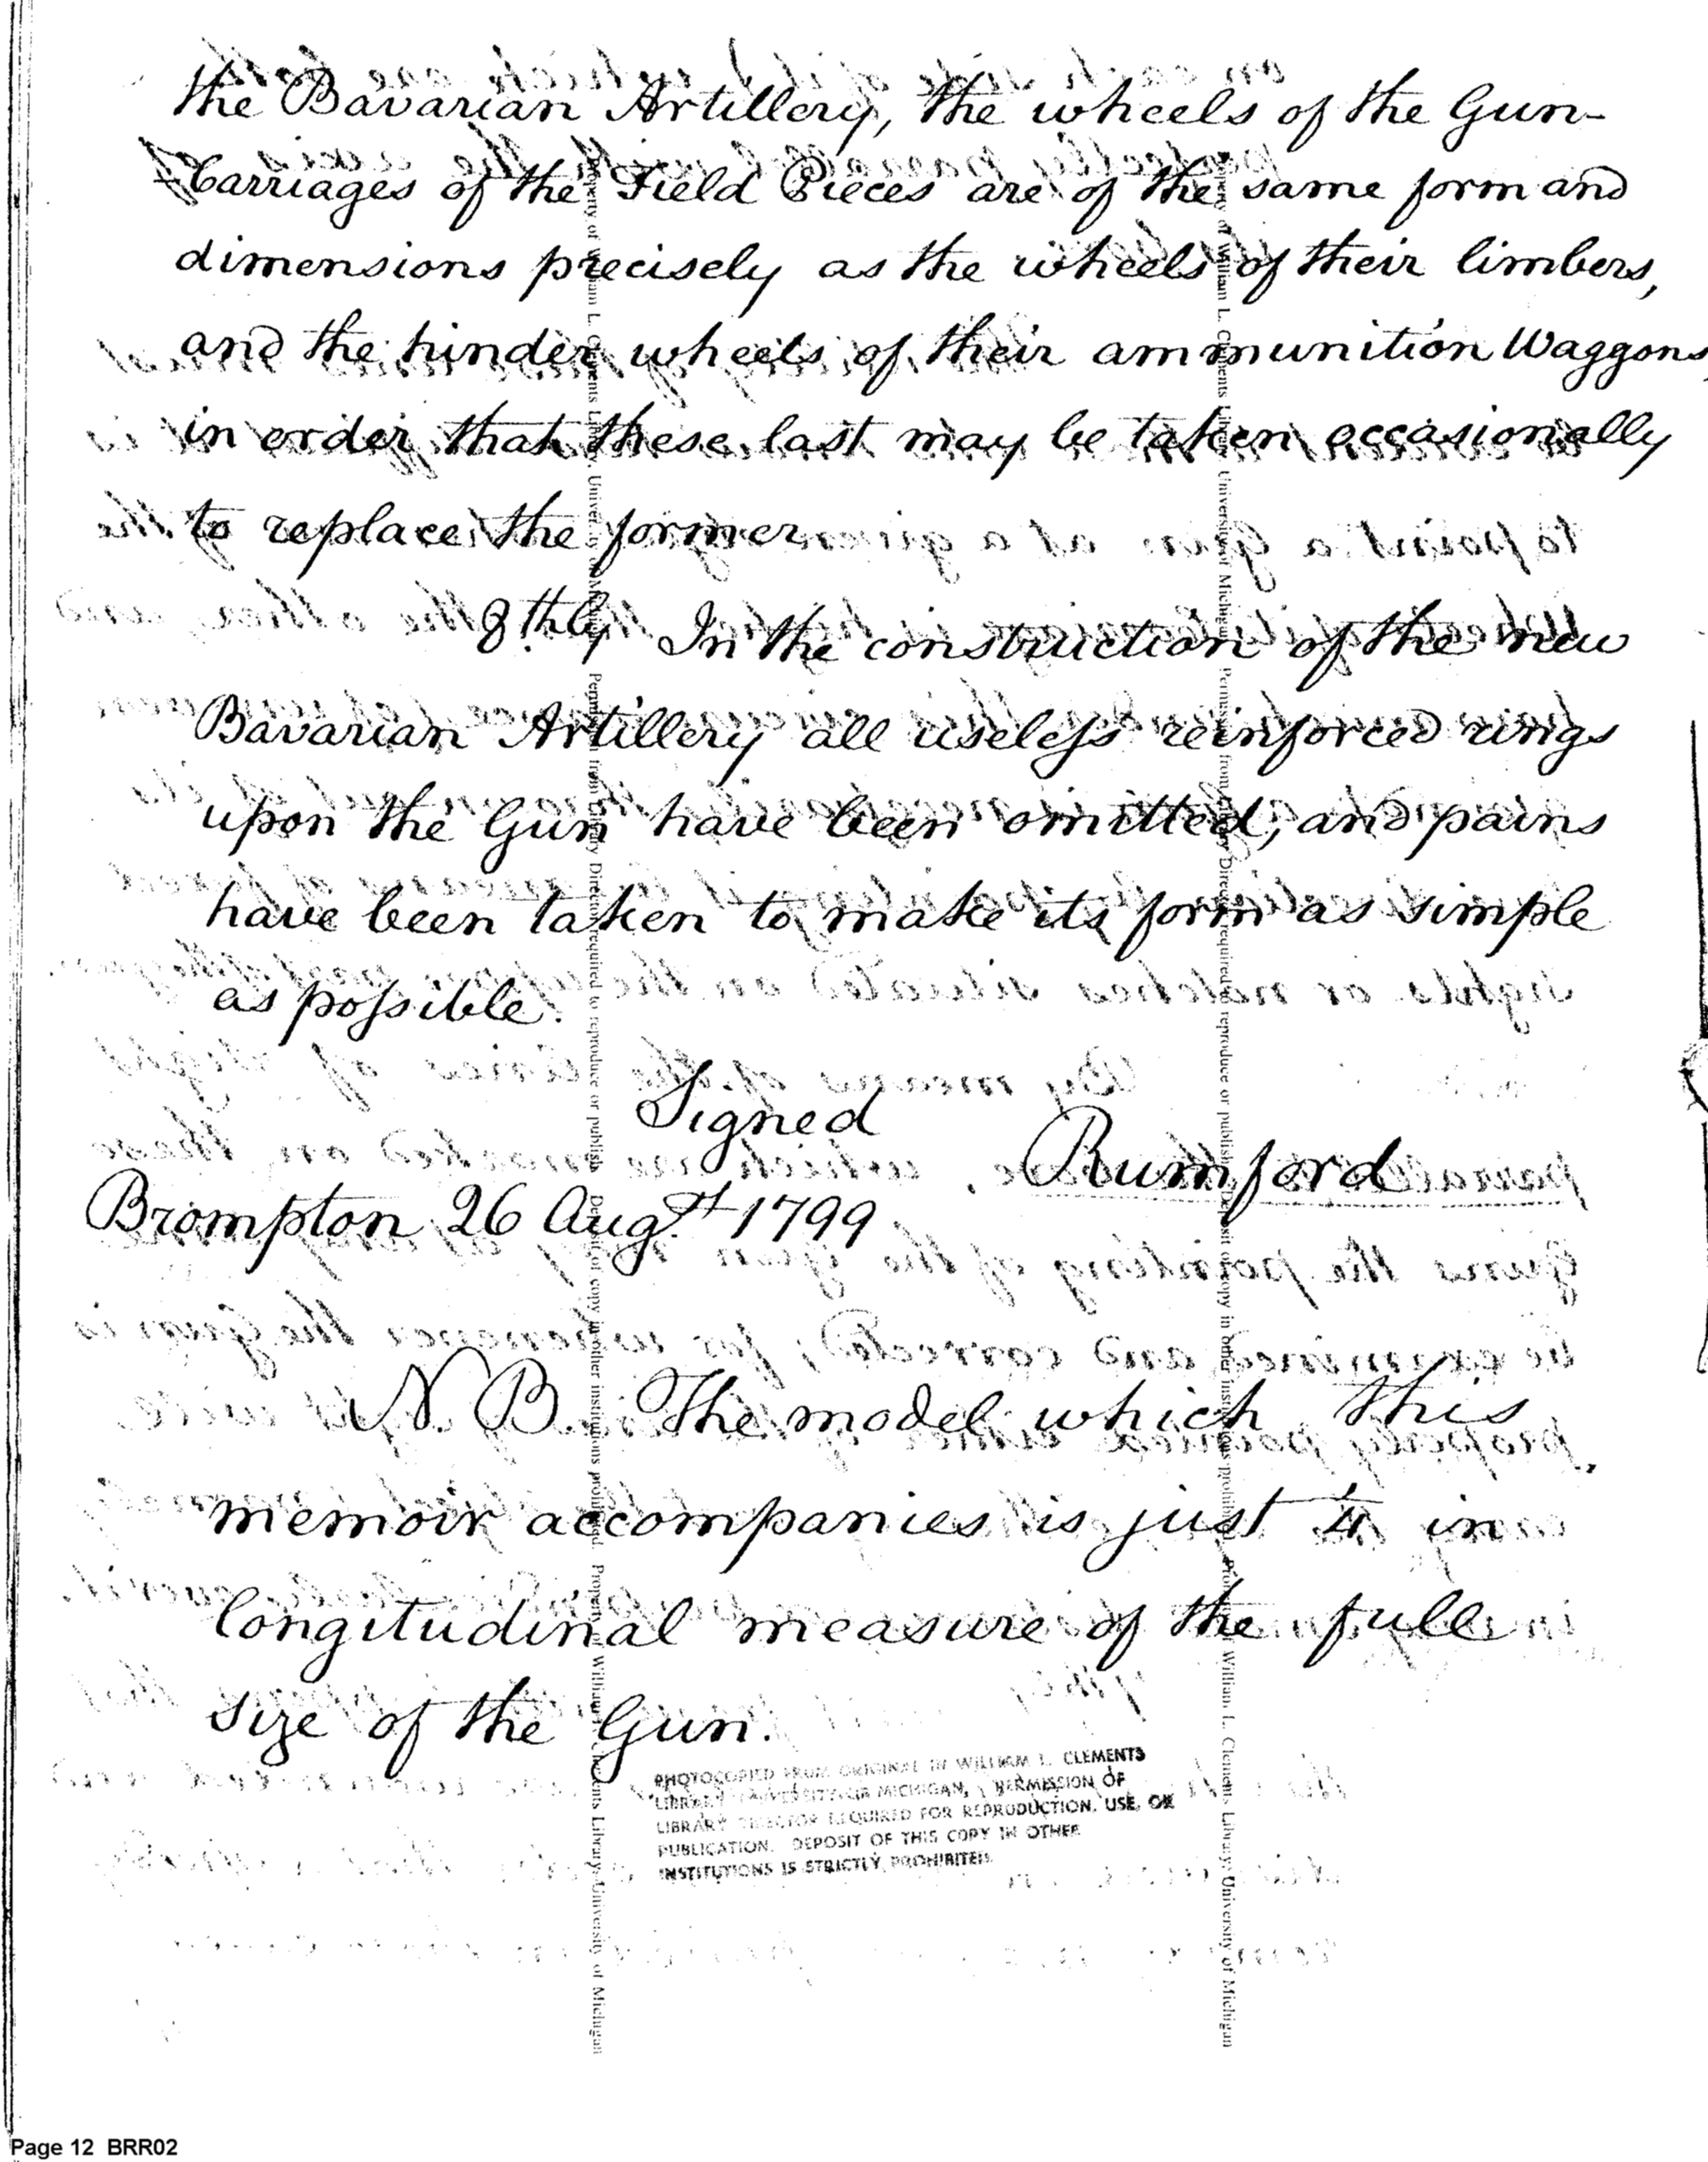 the Bavarian Artillery, the wheels of the Gun-
-Carriages of the Field Pieces are of the same form and
dimensions precisely as the wheels of their limbers,
and the hinder wheels of their ammunition Waggons,
in order that these last may be taken occasionally
to replace the former.
8thly In the construction of the new
Bavarian Artillery all useless reinforced rings
upon the Gun have been omitted, and pains
have been taken to make its form as simple
as possible.
Signed
Rumford
Brompton 26 Augst 1799
N.B. The model which this
memoir accompanies is just 1/4 in
longitudinal measure of the full
size of the Gun.
PHOTOCOPIED FROM ORIGINAL IN WILLIAM L. CLEMENTS
LIBRARY UNIVERSITY OF MICHIGAN, PERMISSION OF
LIBRARY DIRECTOR REQUIRED FOR REPRODUCTION, USE, OR
PUBLICATION. DEPOSIT OF THIS COPY IN OTHER
INSTITUTIONS IS STRICTLY PROHIBITED.
Property of William L. Clements Library, University of Michigan Permission from Library Director required to reproduce or publish Deposit of copy in other institutions prohibited. Property William L. Clements Library, University of Michigan
Property of William L. Clements Library, University of Michigan Permission from Library Director required to reproduce or publish Deposit of copy in other institutions prohibited. Property William L. Clements Library, University of Michigan
Page 12 BRR02